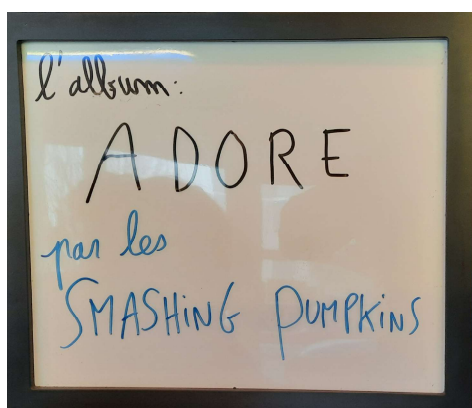 l'album:
ADORE
par les
SMASHiNG PUMPKiNS